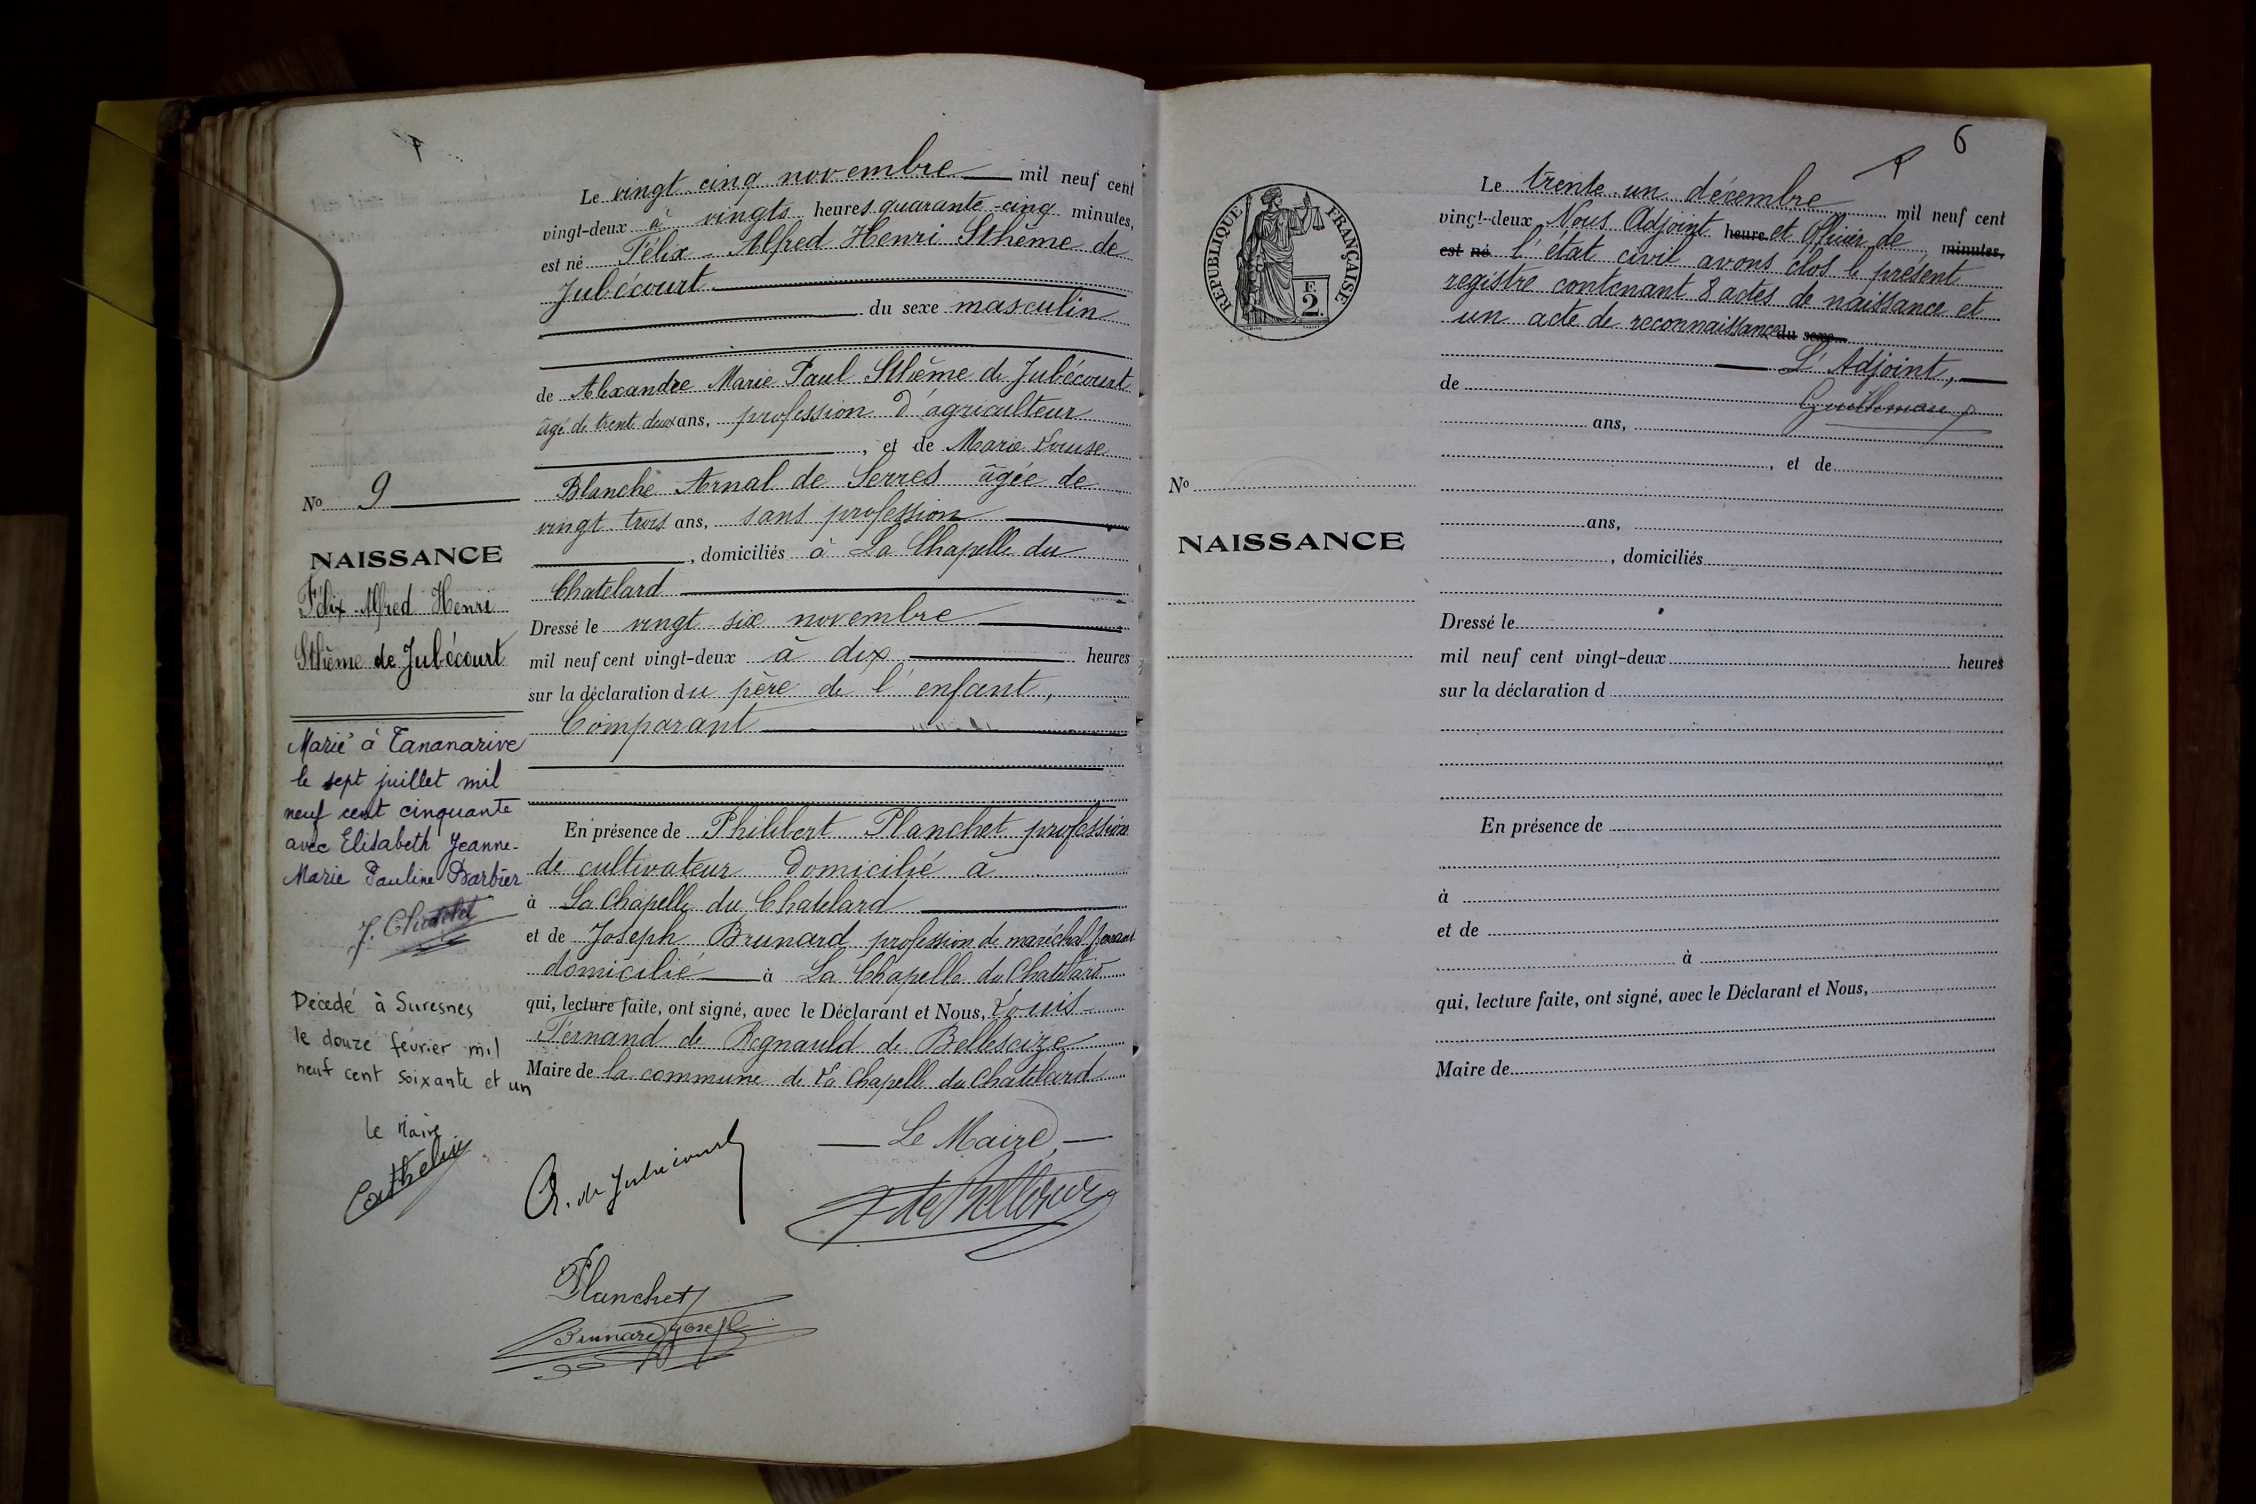 Le vingt cinq novembre mil neuf cent
vingt-deux à vingts heures quarante-cinq minutes,
est né Félix-Alfred Henri Sthême de
Jubécourt
du sexe masculin
de Alexandre Marie Paul Sthême de Jubécourt
âgé de trent deux ans, profession d'agriculteur
, et de Marie Louise
Blanche Arnal de Serres âgée de
vingt trois ans, sans profession
, domiciliés à La Chapelle du
Chatelard
Dressé le vingt six novembre
mil neuf cent vingt-deux à dix heures
sur la déclaration du père de l'enfant,
Comparant
En présence de Philibert Planchet profession
de cultivateur domicilié à
à La Chapelle du Chatelard
et de Joseph Brunard profession de maréchal ferrant
domicilié à La Chapelle du Chatelard
qui, lecture faite, ont signé, avec le Déclarant et Nous, Louis
Fernand de Regnauld de Bellescize
Maire de la commune de La Chapelle du Chatelard
Le Maire
A. de Jubécourt
Planchet
Brunard Joseph
No 9
NAISSANCE
Félix-Alfred Henri
Sthême de Jubécourt
Marié à Tananarive
le sept juillet mil
neuf cent cinquante
avec Elisabeth Jeanne-
Marie Pauline Barbier
J. Chatelet
Décédé à Suresnes
le douze février mil
neuf cent soixante et un
le Maire
6
RÉPUBLIQUE FRANÇAISE
F
2.
Le trente-un décembre mil neuf cent
vingt-deux Nous Adjoint heure et Officier de minutes,
est né l'état civil avons clos le présent
registre contenant 8 actes de naissance et
un acte de reconnaissance du sexe
L'Adjoint,
de
ans,
, et de
ans,
, domiciliés
Dressé le
mil neuf cent vingt-deux heures
sur la déclaration d
En présence de
à
et de
à
qui, lecture faite, ont signé, avec le Déclarant et Nous,
Maire de
No
NAISSANCE